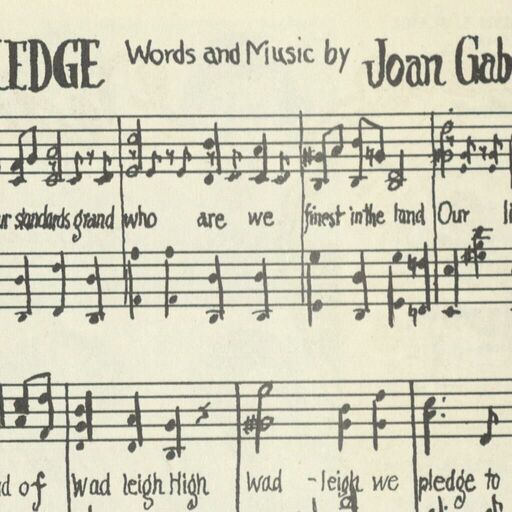 EDGE Words and Music by Joan Gab
ur standards grand who are we finest in the land Our li
d of Wad leigh High wad - leigh we pledge to